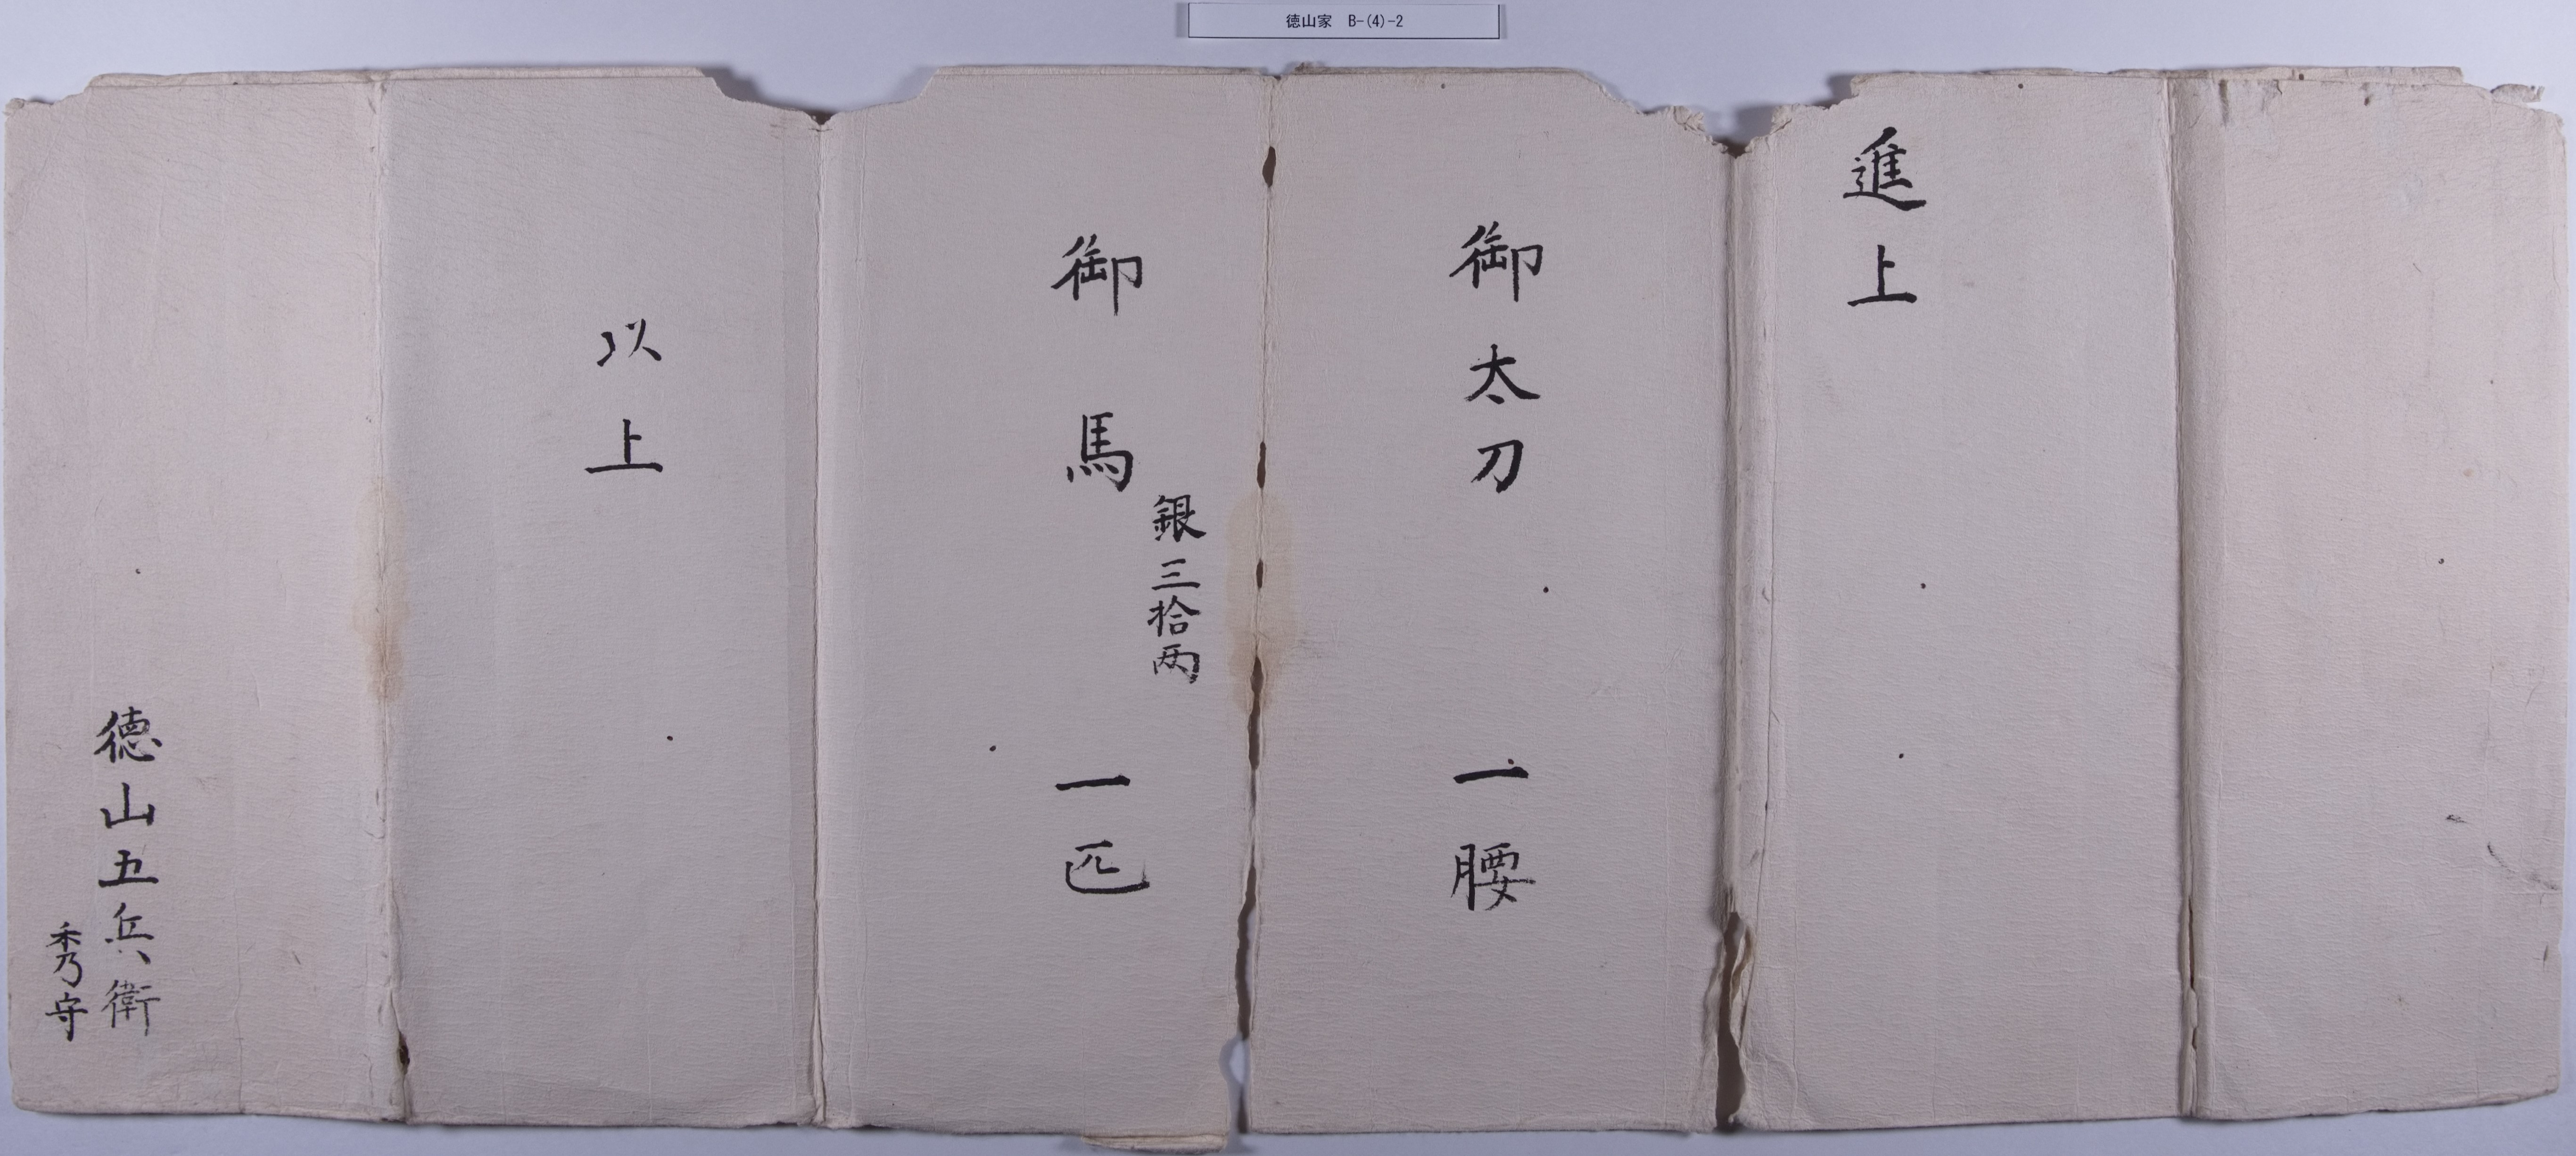 徳山家 B-(4)-2
進上
御太刀 一腰
御馬 一匹
銀三拾両
以上
徳山五兵衛
秀守